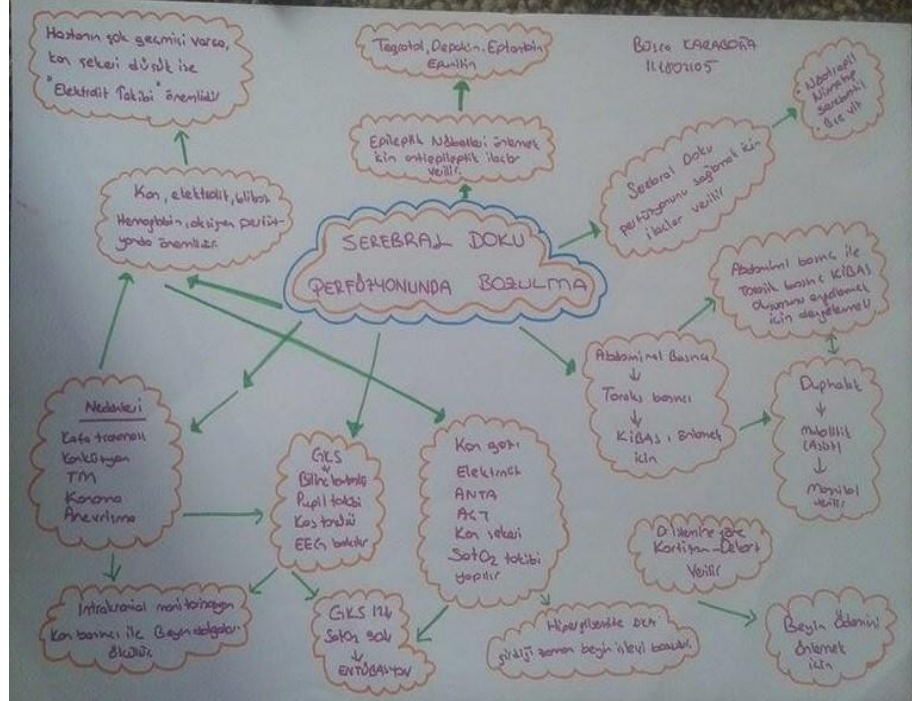 Hastanın şok geçmişi varsa,
kan şekeri düşük ise
"Elektrolit Takibi" önemlidir
Tegretol, Depakin, Eptantoin
Epanitin
Büşra KARABOĞA
Nootropil
Nimotop
Epileptik Nöbetleri önlemek
için antiepileptik ilaçlar
verilir.
Serebral Doku
perfüzyonunu sağlamak için
ilaçlar verilir
Kan, elektrolit,
Hemoglobin, oksijen
önemlidir.
SEREBRAL DOKU
PERFÜZYONUNDA BOZULMA
Abdominal basınç ile
Torasik basınç KİBAS
için
Abdominal Basınç
↓
Toraks basıncı
↓
KİBAS ı önlemek
için
Duphalac
↓
↓
Mannitol
verilir
Nedenleri
Kafa travması
Konküzyon
TM
Kanama
Anevrizma
GKS
Pupil takibi
Kas tonüsü
EEG bakılır
Kan gazı
Elektrolit
ANTA
AKŞ
Kan şekeri
SatO2 takibi
yapılır
Kortizon-Dekort
Verilir
İntrakranial monitorizasyon
Kan basıncı ile Beyin dalgaları
ölçülür.
GKS
↓
ENTÜBASYON
zaman beyin işlevi bozulur.
Beyin Ödemini
önlemek
için